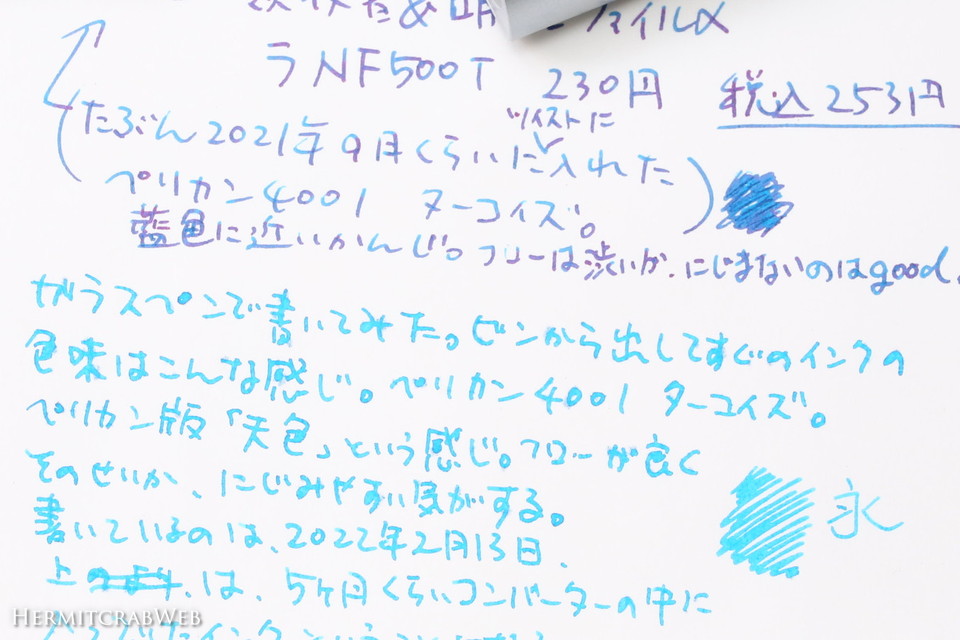 ラNF500T 230円 税込2531円
ツイストに
たぶん2021年9月くらいに入れた
ペリカン4001 ターコイズ。
藍色に近いかんじ。フローは渋いが、にじまないのはgood。
ガラスペンで書いてみた。ビンから出してすぐのインクの
色味はこんな感じ。ペリカン4001 ターコイズ。
ペリカン版「天色」という感じ。フローが良く
そのせいか、にじみやすい気がする。
永
書いているのは、2022年2月13日、
上は、5ヶ月くらいコンバーターの中に
HERMITCRABWEB